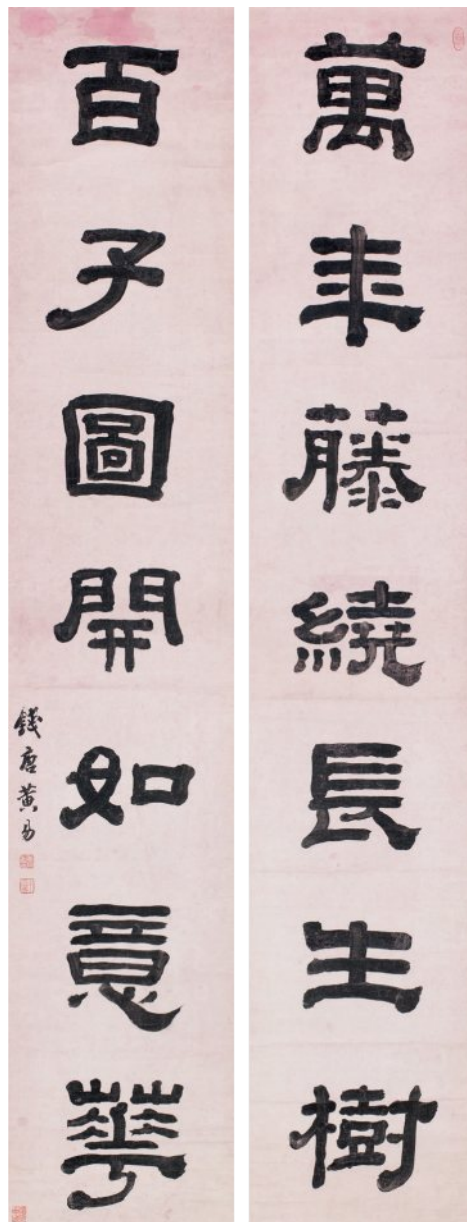 萬年藤繞長生樹
百子圖開如意華
錢唐黄易